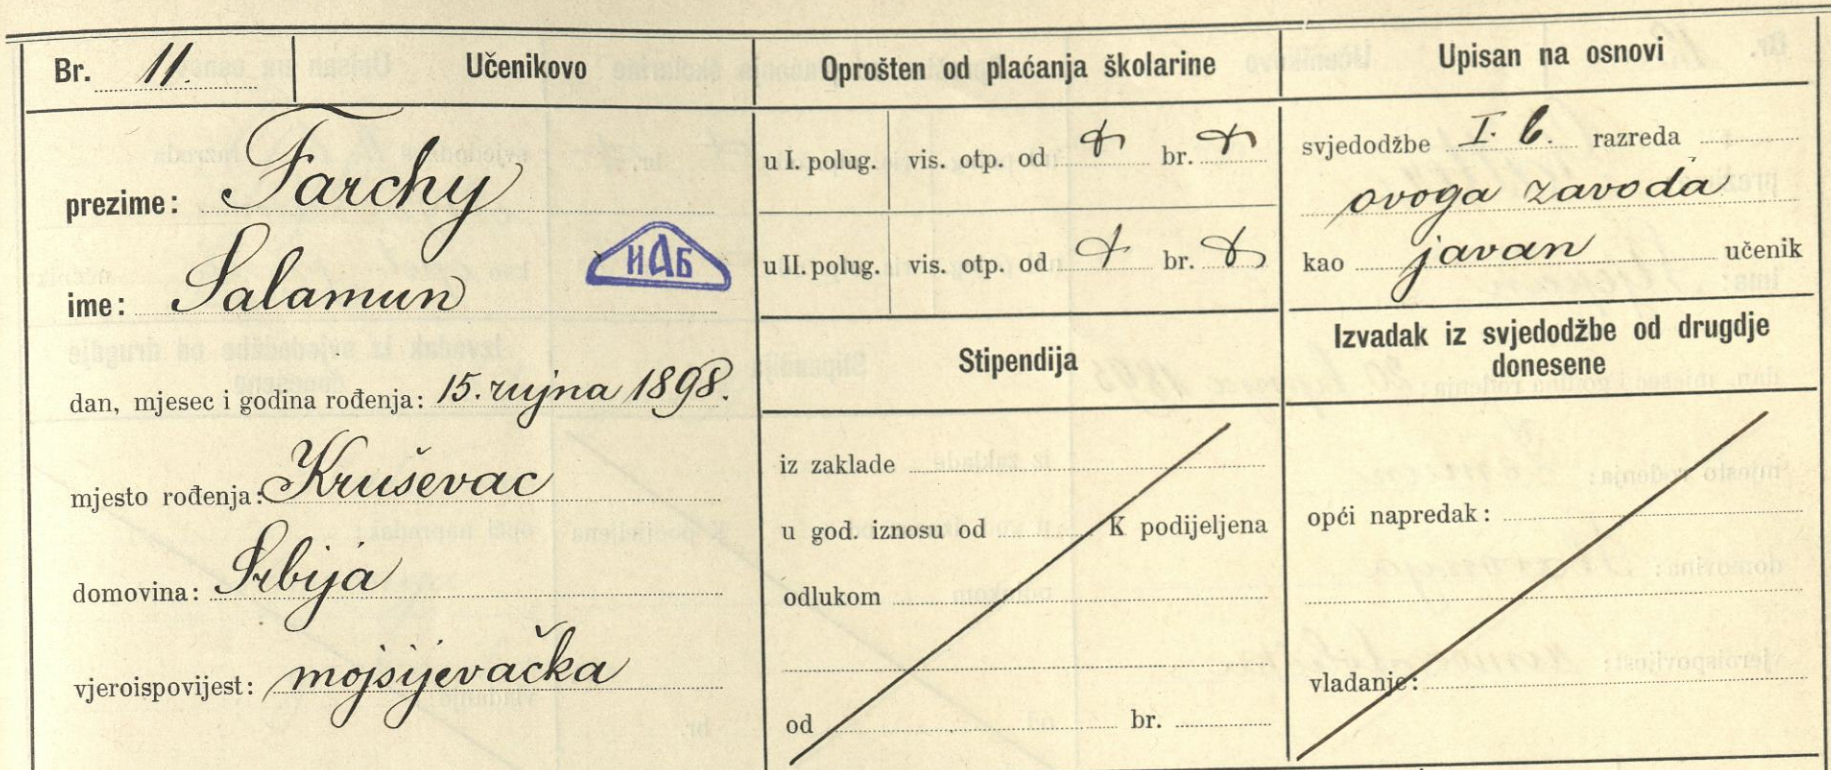 Br. 11. Učenikovo
prezime: Farchy
ime: Salamun
ИАБ
dan, mjesec i godina rođenja: 15. rujna 1898.
mjesto rođenja: Kruševac
domovina: Srbija
vjeroispovijest: mojsijevačka
Oprošten od plaćanja školarine
u I. polug. vis. otp. od br.
u II. polug. vis. otp. od br.
Stipendija
iz zaklade
u god. iznosu od K podijeljena
odlukom
od br.
Upisan na osnovi
svjedodžbe I. b. razreda
ovoga zavoda
kao javan učenik
Izvadak iz svjedodžbe od drugdje
donesene
opći napredak:
vladanje: